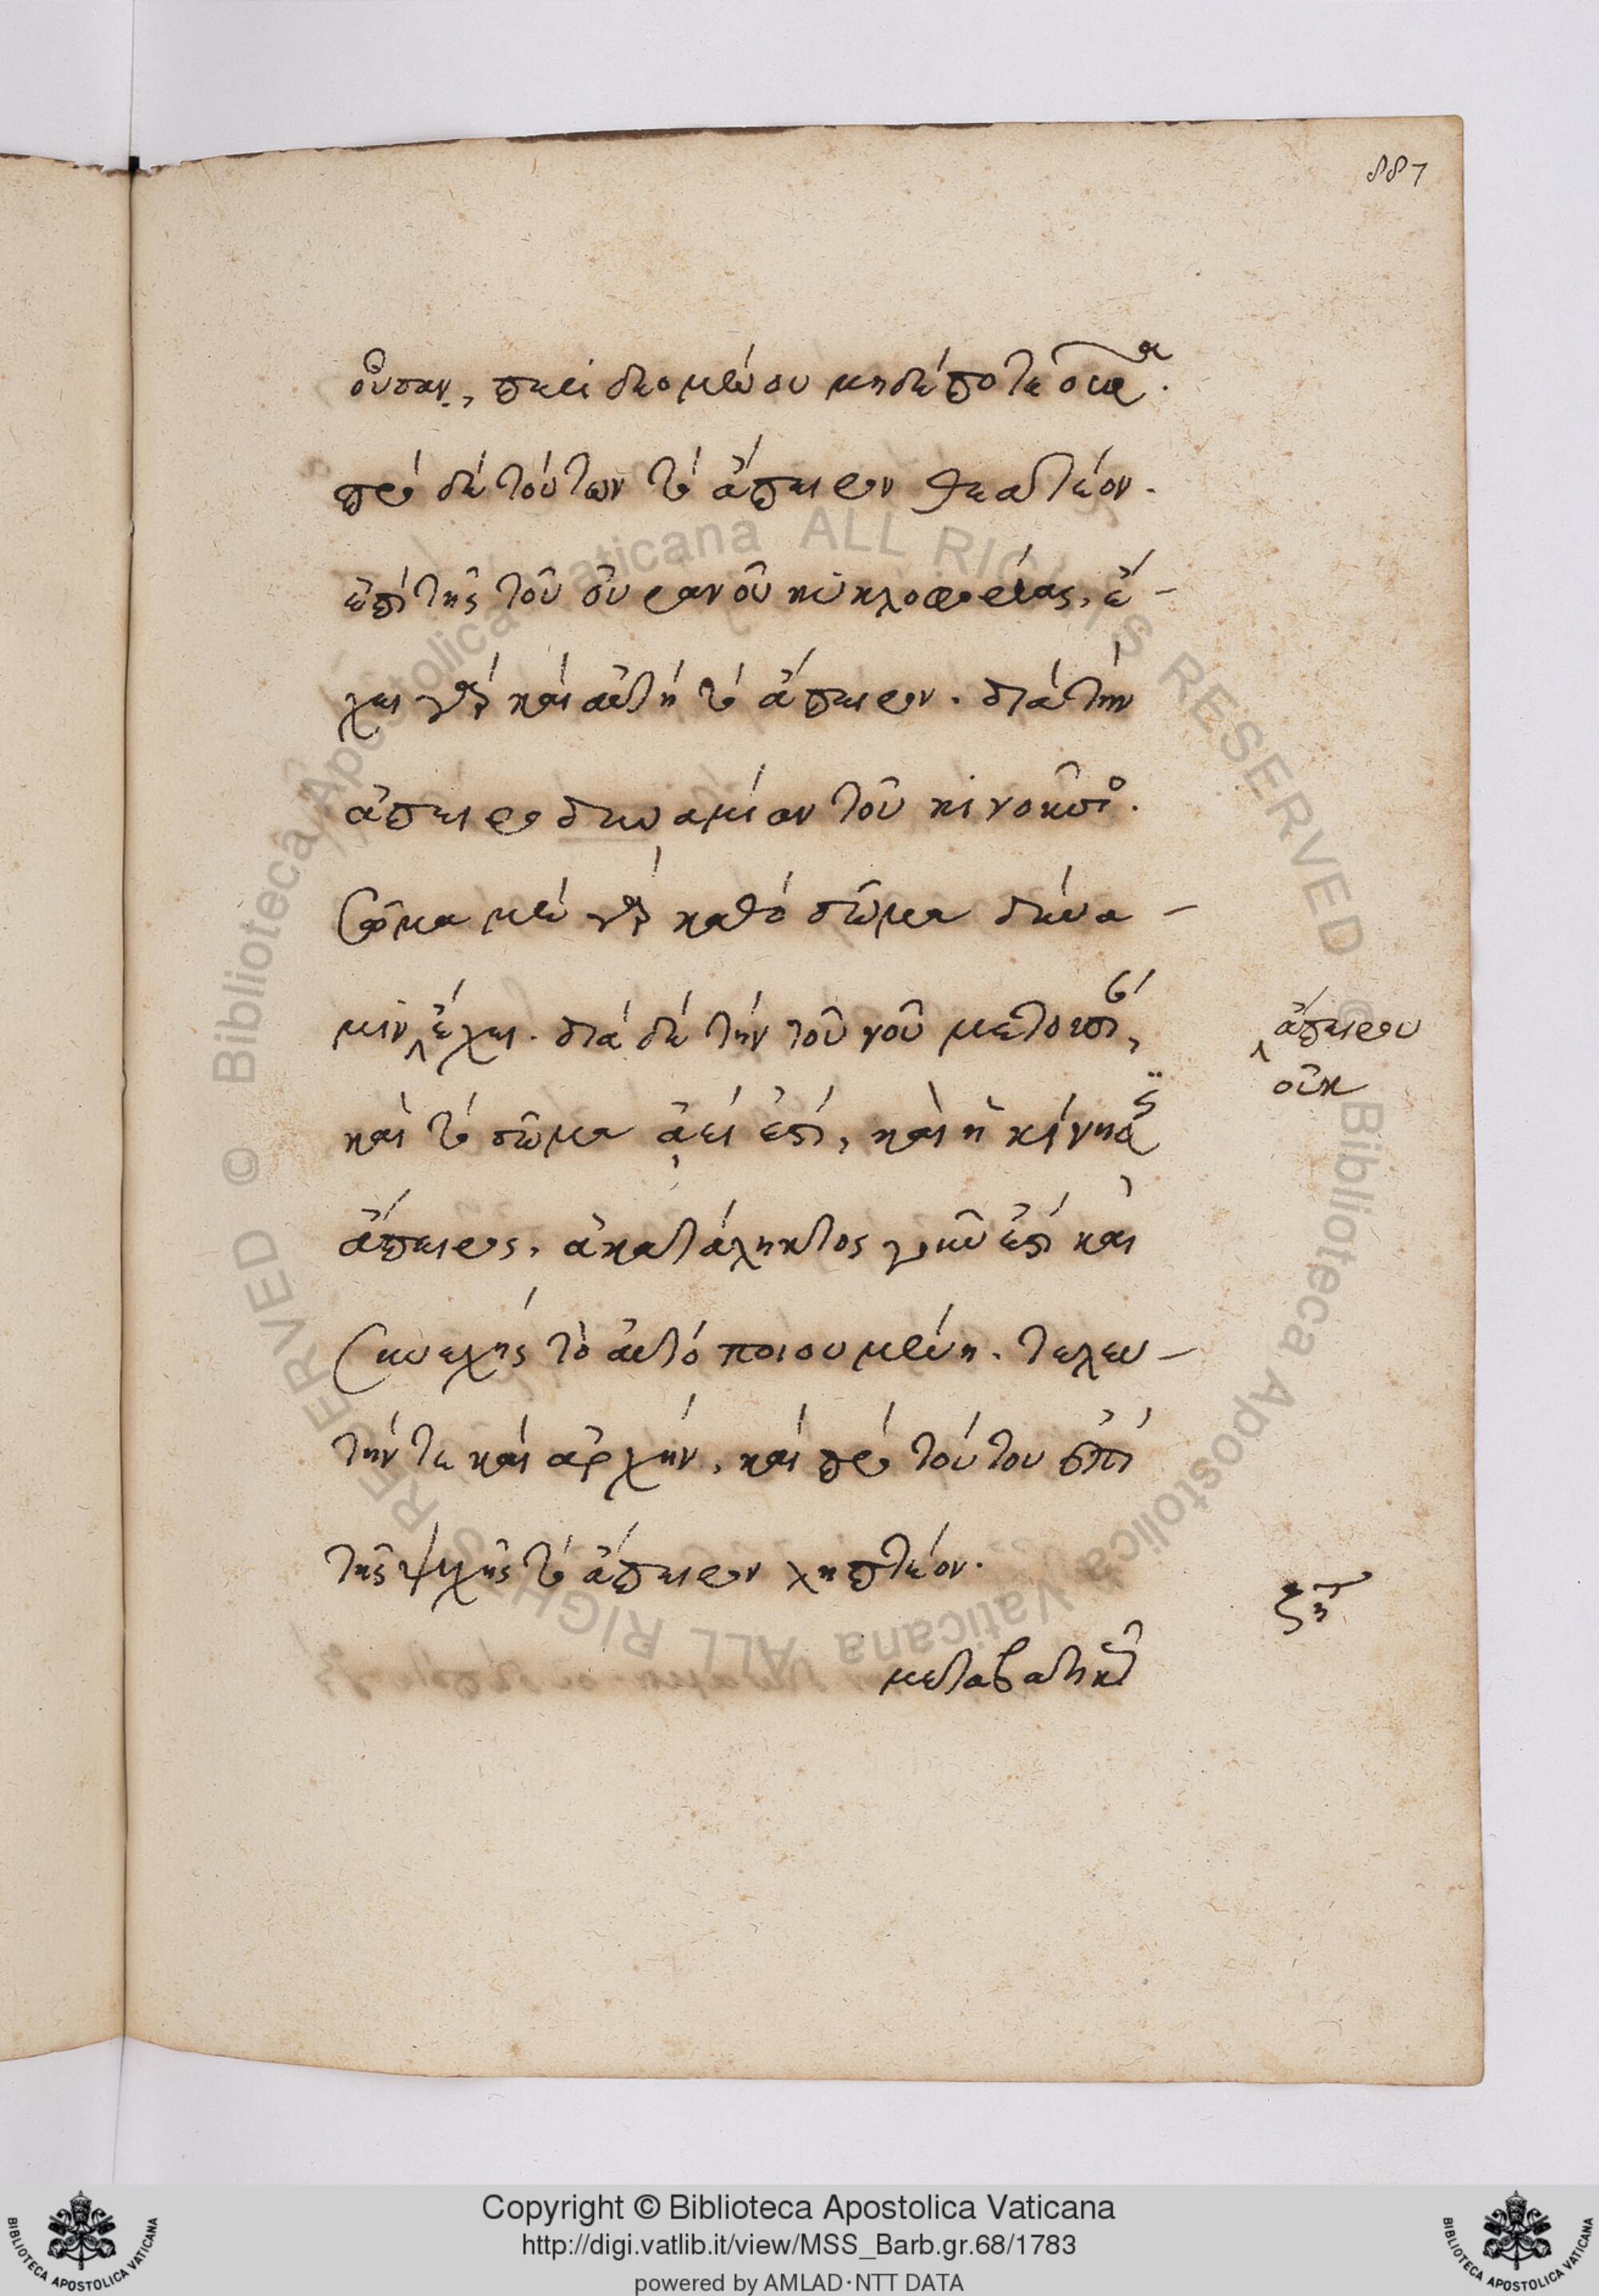 887
οὖσαν, περὶ δεομένου μηδέποτε
πρὸ δὲ τούτων τὸ ἄπειρον θεατέον.
ἐπὶ τῆς τοῦ οὐρανοῦ κυκλοφορίας, ἔ-
χει γὰρ καὶ αὐτὴ τὸ ἄπειρον. διὰ τὴν
ἀπειροδυναμίαν τοῦ κινοῦντος.
Σῶμα μὲν γὰρ καθὸ σῶμα δύνα-
μιν ἔχει. διὰ δὲ τὴν τοῦ νοῦ μετουσίαν,
ἄπειρον
οὐκ
καὶ τὸ σῶμα ἀεὶ ἐστὶ, καὶ ἡ κίνησις
ἄπειρος, ἀκατάληκτος γοῦν ἐστὶ καὶ
Συνεχὴς τὸ αὐτὸ ποιουμένη. τελευ-
τήν τε καὶ ἀρχὴν, καὶ πρὸ τούτου ἐπὶ
τῆς ψυχῆς τὸ ἄπειρον ληπτέον.
μεταβατικῶς
Copyright © Biblioteca Apostolica Vaticana
http://digi.vatlib.it/view/MSS_Barb.gr.68/1783
powered by AMLAD·NTT DATA
BIBLIOTECA APOSTOLICA VATICANA
BIBLIOTECA APOSTOLICA VATICANA
© Biblioteca Apostolica Vaticana ALL RIGHTS RESERVED
© Biblioteca Apostolica Vaticana ALL RIGHTS RESERVED